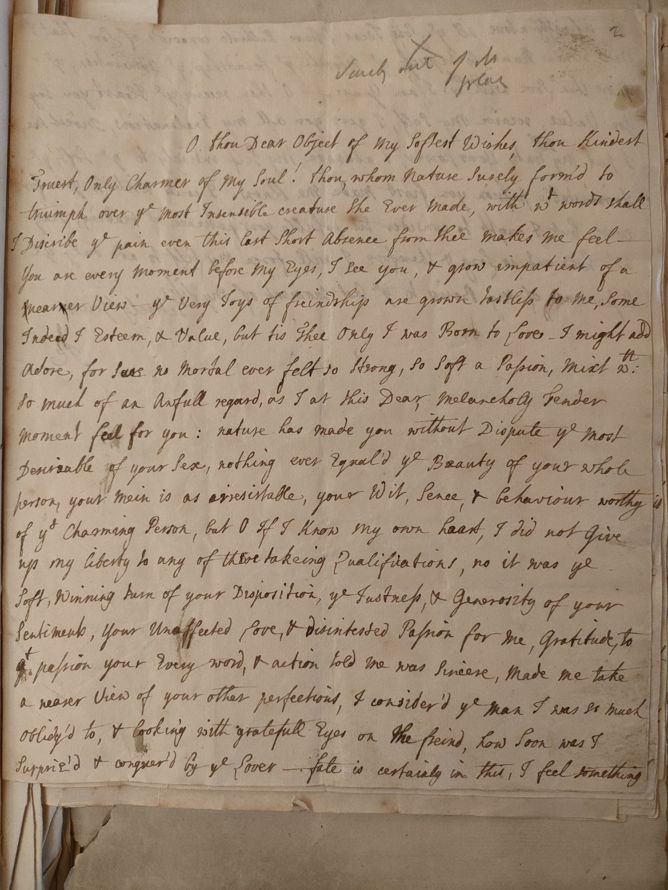 2
O thou Dear Object of My Softest Wishes, thou Kindest
Truest, Only Charmer of My Soul! thou, whom Nature Surely form'd to
triumph over ye Most Insensible creature She Ever Made, with wt words shall
I Discribe ye pain even this last Short Absence from thee makes me feel –
You are every Moment before My Eyes, I See you, & grow impatient of a
nearer View – ye Very Joys of freindship are grown tastless to Me, Some
Indeed I Esteem, & Value, but tis Thee Only I was Born to Love – I might add
Adore, for Sure no Mortal ever felt so Strong, So Soft a Passion, Mixt wth:
So much of an Awfull regard, as I at this Dear, Melancholy Tender
Moment feel for you: nature has made you without Dispute ye Most
Desireable of your Sex, nothing ever Equal'd ye Beauty of your whole
person, your Mein is as irresistable, your Wit, Sence, & behaviour worthy
of yt Charming Person, but O If I Know My own heart, I did not Give
up my liberty to any of these takeing Qualifications, no it was ye
Soft, Winning turn of your Disposition, ye Justness, & Generosity of your
Sentiments, Your Unaffected Love, & disintersted Passion for Me, Gratitude, to
yt passion your Every word, & action told Me was Sincere, Made me take
a nearer View of your other perfections, I consider'd ye Man I was so much
oblidg'd to, & looking with gratefull Eyes on the freind, how Soon was I
Surpriz'd & conquer'd by ye Lover – fate is certainly in this, I feel something